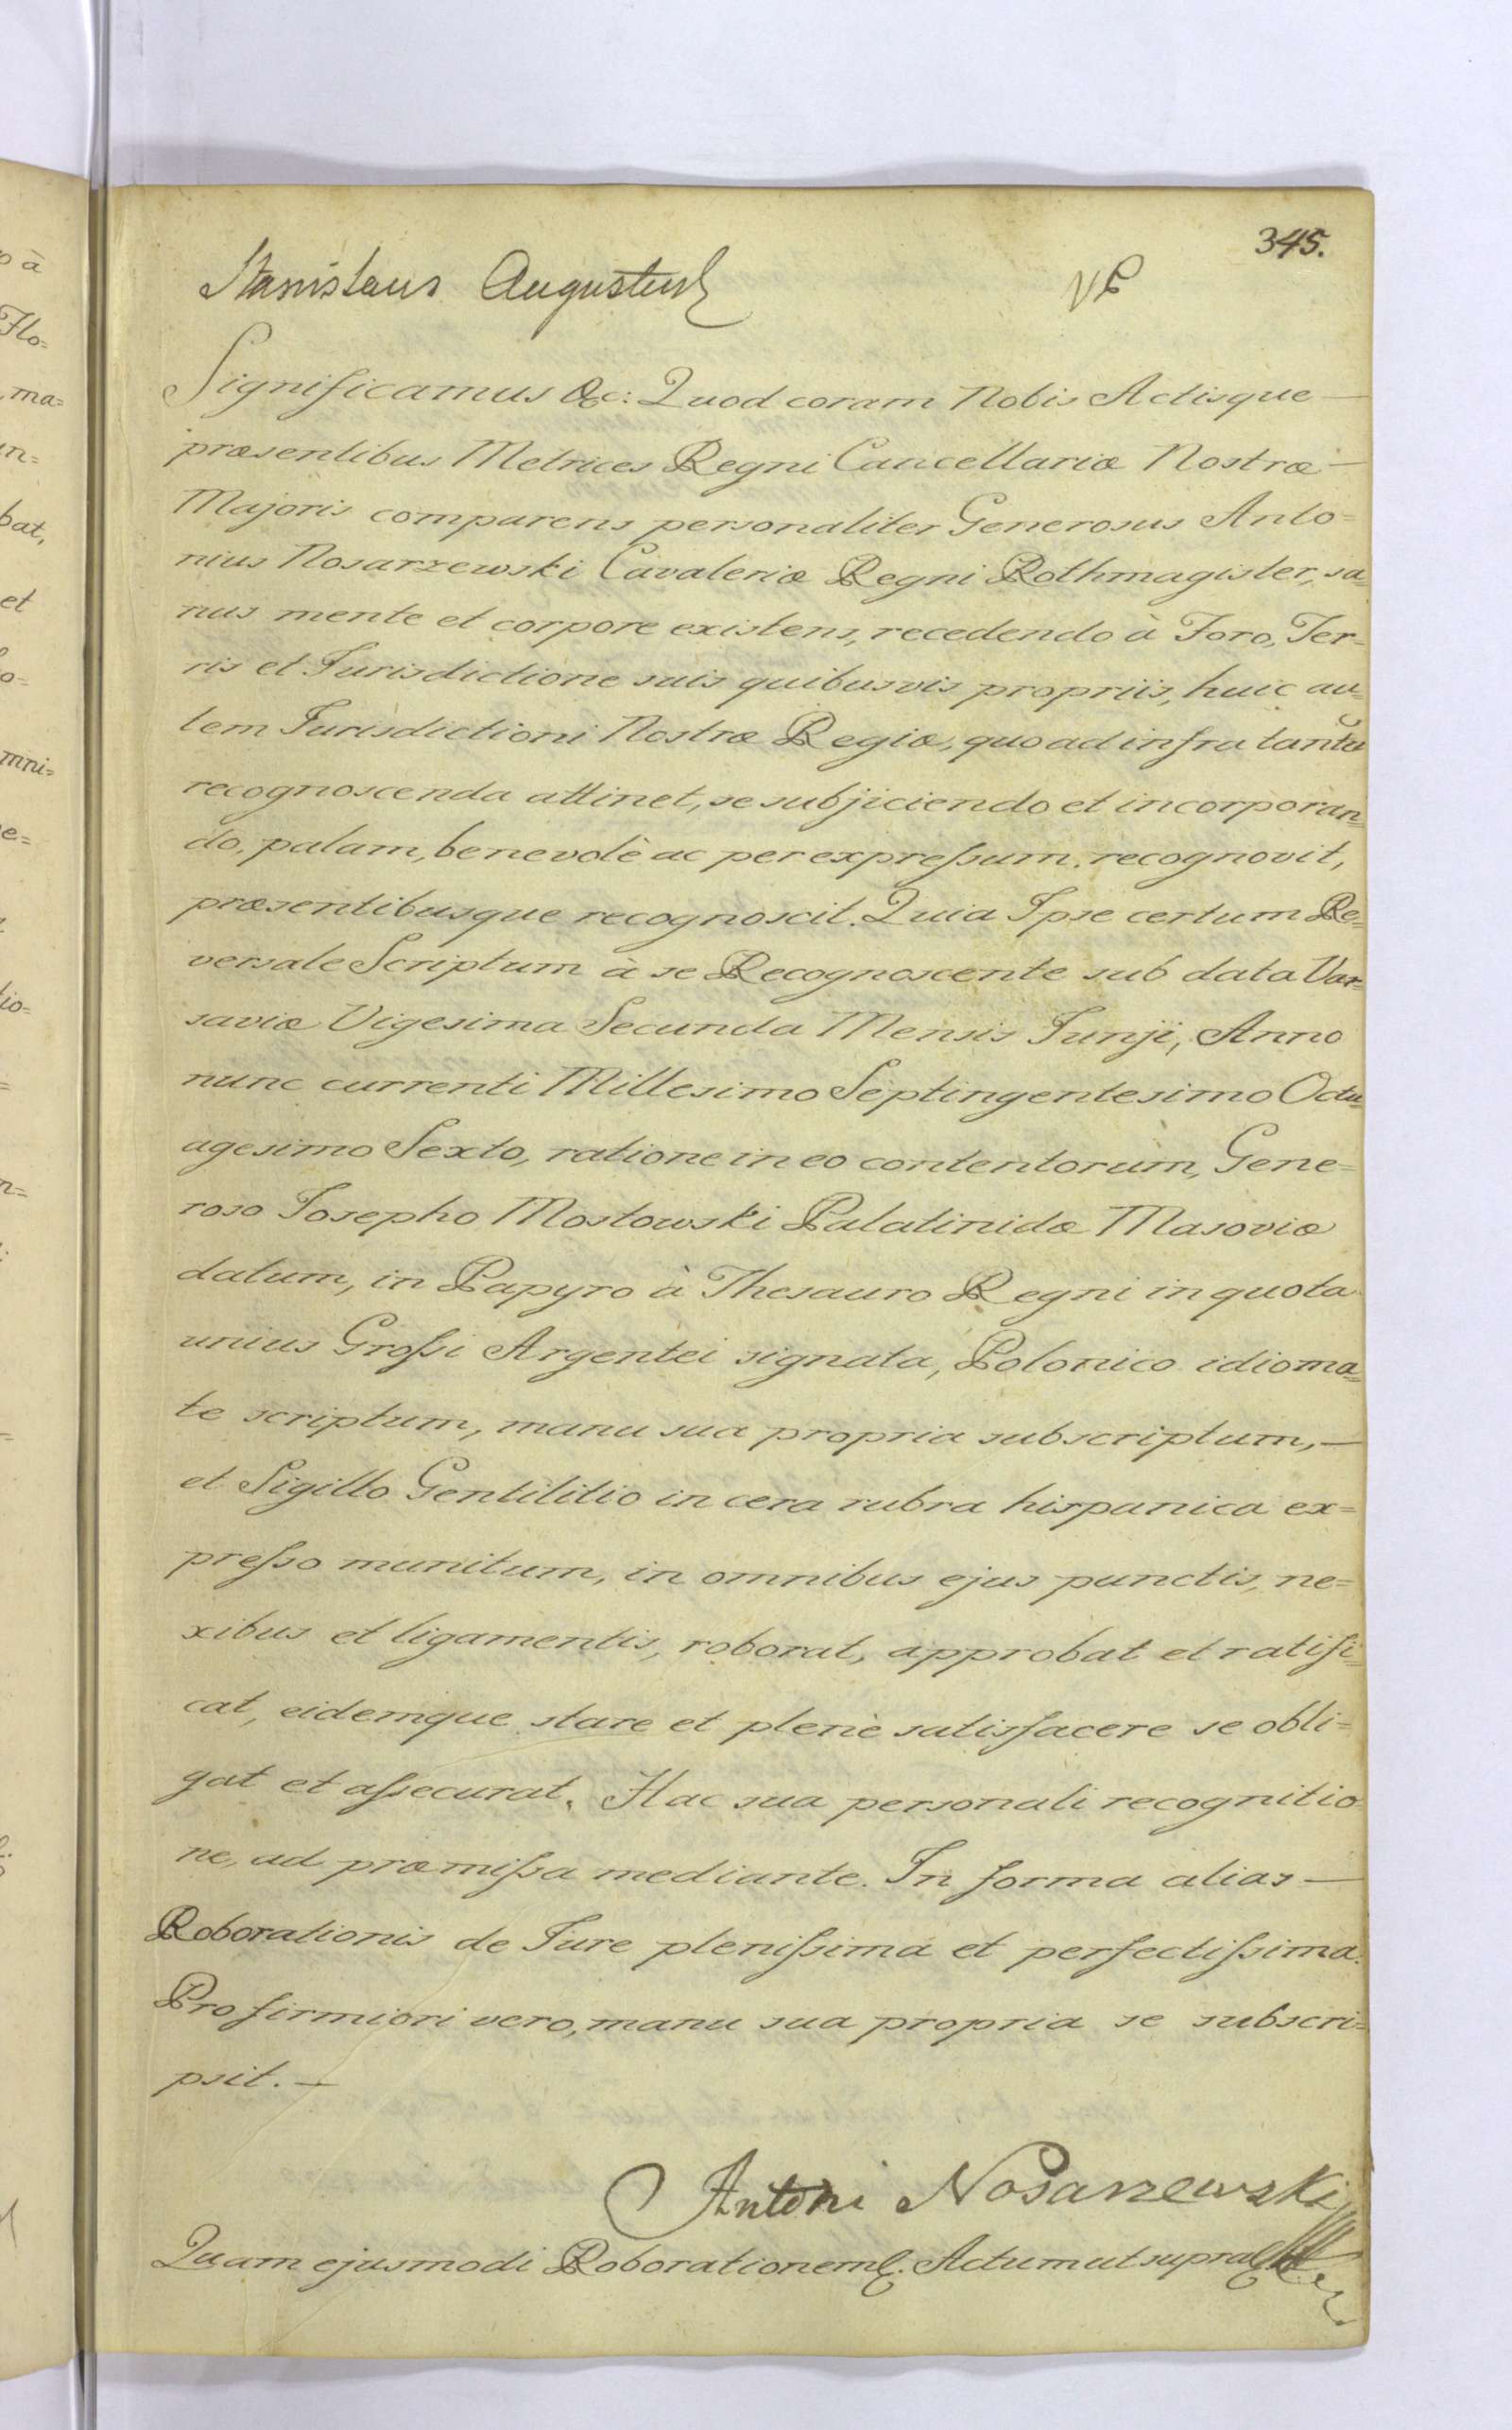 345.
Stanislaus Augustus
VP
Significamus &c: Quod coram Nobis Actisque —
præsentibus Metrices Regni Cancellariæ Nostræ —
Majoris comparens personaliter Generosus Anto=
nius Nosarzewski Cavaleriæ Regni Rothmagister, sa=
nus mente et corpore existens, recedendo à Foro, Ter=
ris et Jurisdictione suis quibusvis propriis, huic au=
tem Jurisdictioni Nostræ Regiæ, quo ad infra tantũ
recognoscenda attinet, se subjiciendo et incorporan=
do, palam, benevolè ac per expreſsum, recognovit,
præsentibusque recognoscit. Quia Ipse certum Re=
versale Scriptum à se Recognoscente sub data Var=
saviæ Vigesima Secunda Mensis Junji, Anno
nunc currenti Millesimo Septingentesimo Octu=
agesimo Sexto, ratione in eo contentorum, Gene=
roso Josepho Mostowski Palatinidæ Masoviæ
datum, in Papyro à Thesauro Regni in quota
unius Groſsi Argentei signata, Polonico idioma=
te scriptum, manu sua propria subscriptum, —
et Sigillo Gentilitio in cera rubra hispanica ex=
preſso munitum, in omnibus ejus punctis, ne=
xibus et ligamentis, roborat, approbat et ratifi=
cat, eidemque stare et plenè satisfacere se obli=
gat et aſsecurat. Hac sua personali recognitio
ne, ad præmiſsa mediante. In forma alias —
Roborationis de Jure pleniſsima et perfectiſsima.
Pro firmiori vero, manu sua propria se subscri=
psit. —
Antoni Nosarzewski
Quam ejusmodi Roborationem &. Actum ut supra
à
Flo=
ma=
in=
bat,
et
o=
mni=
e=
tio=
n=